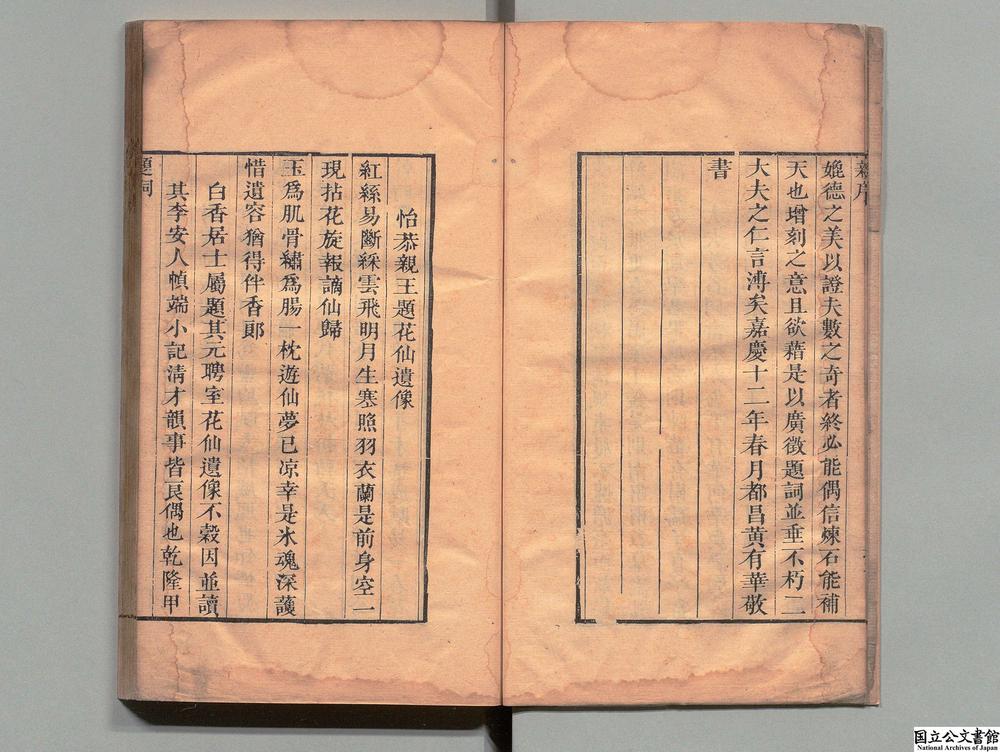 媲德之美以證夫數之奇者終必能偶信煉石能補
天也增刻之意且欲藉是以廣徵題詞並垂不朽二
大夫之仁言溥矣嘉慶十二年春月都昌黃有華敬
書
怡恭親王題花仙遺像
紅絲易斷綵雲飛明月生寒照羽衣蘭是前身空一
現拈花旋報謫仙歸
玉爲肌骨繡爲腸一枕遊仙夢已凉幸是氷魂深護
惜遺容猶得伴香郞
白香居士屬題其元聘室花仙遺像不穀因並讀
其李安人幀端小記淸才韻事皆良偶也乾隆甲
題詞
国立公文書館
National Archives of Japan